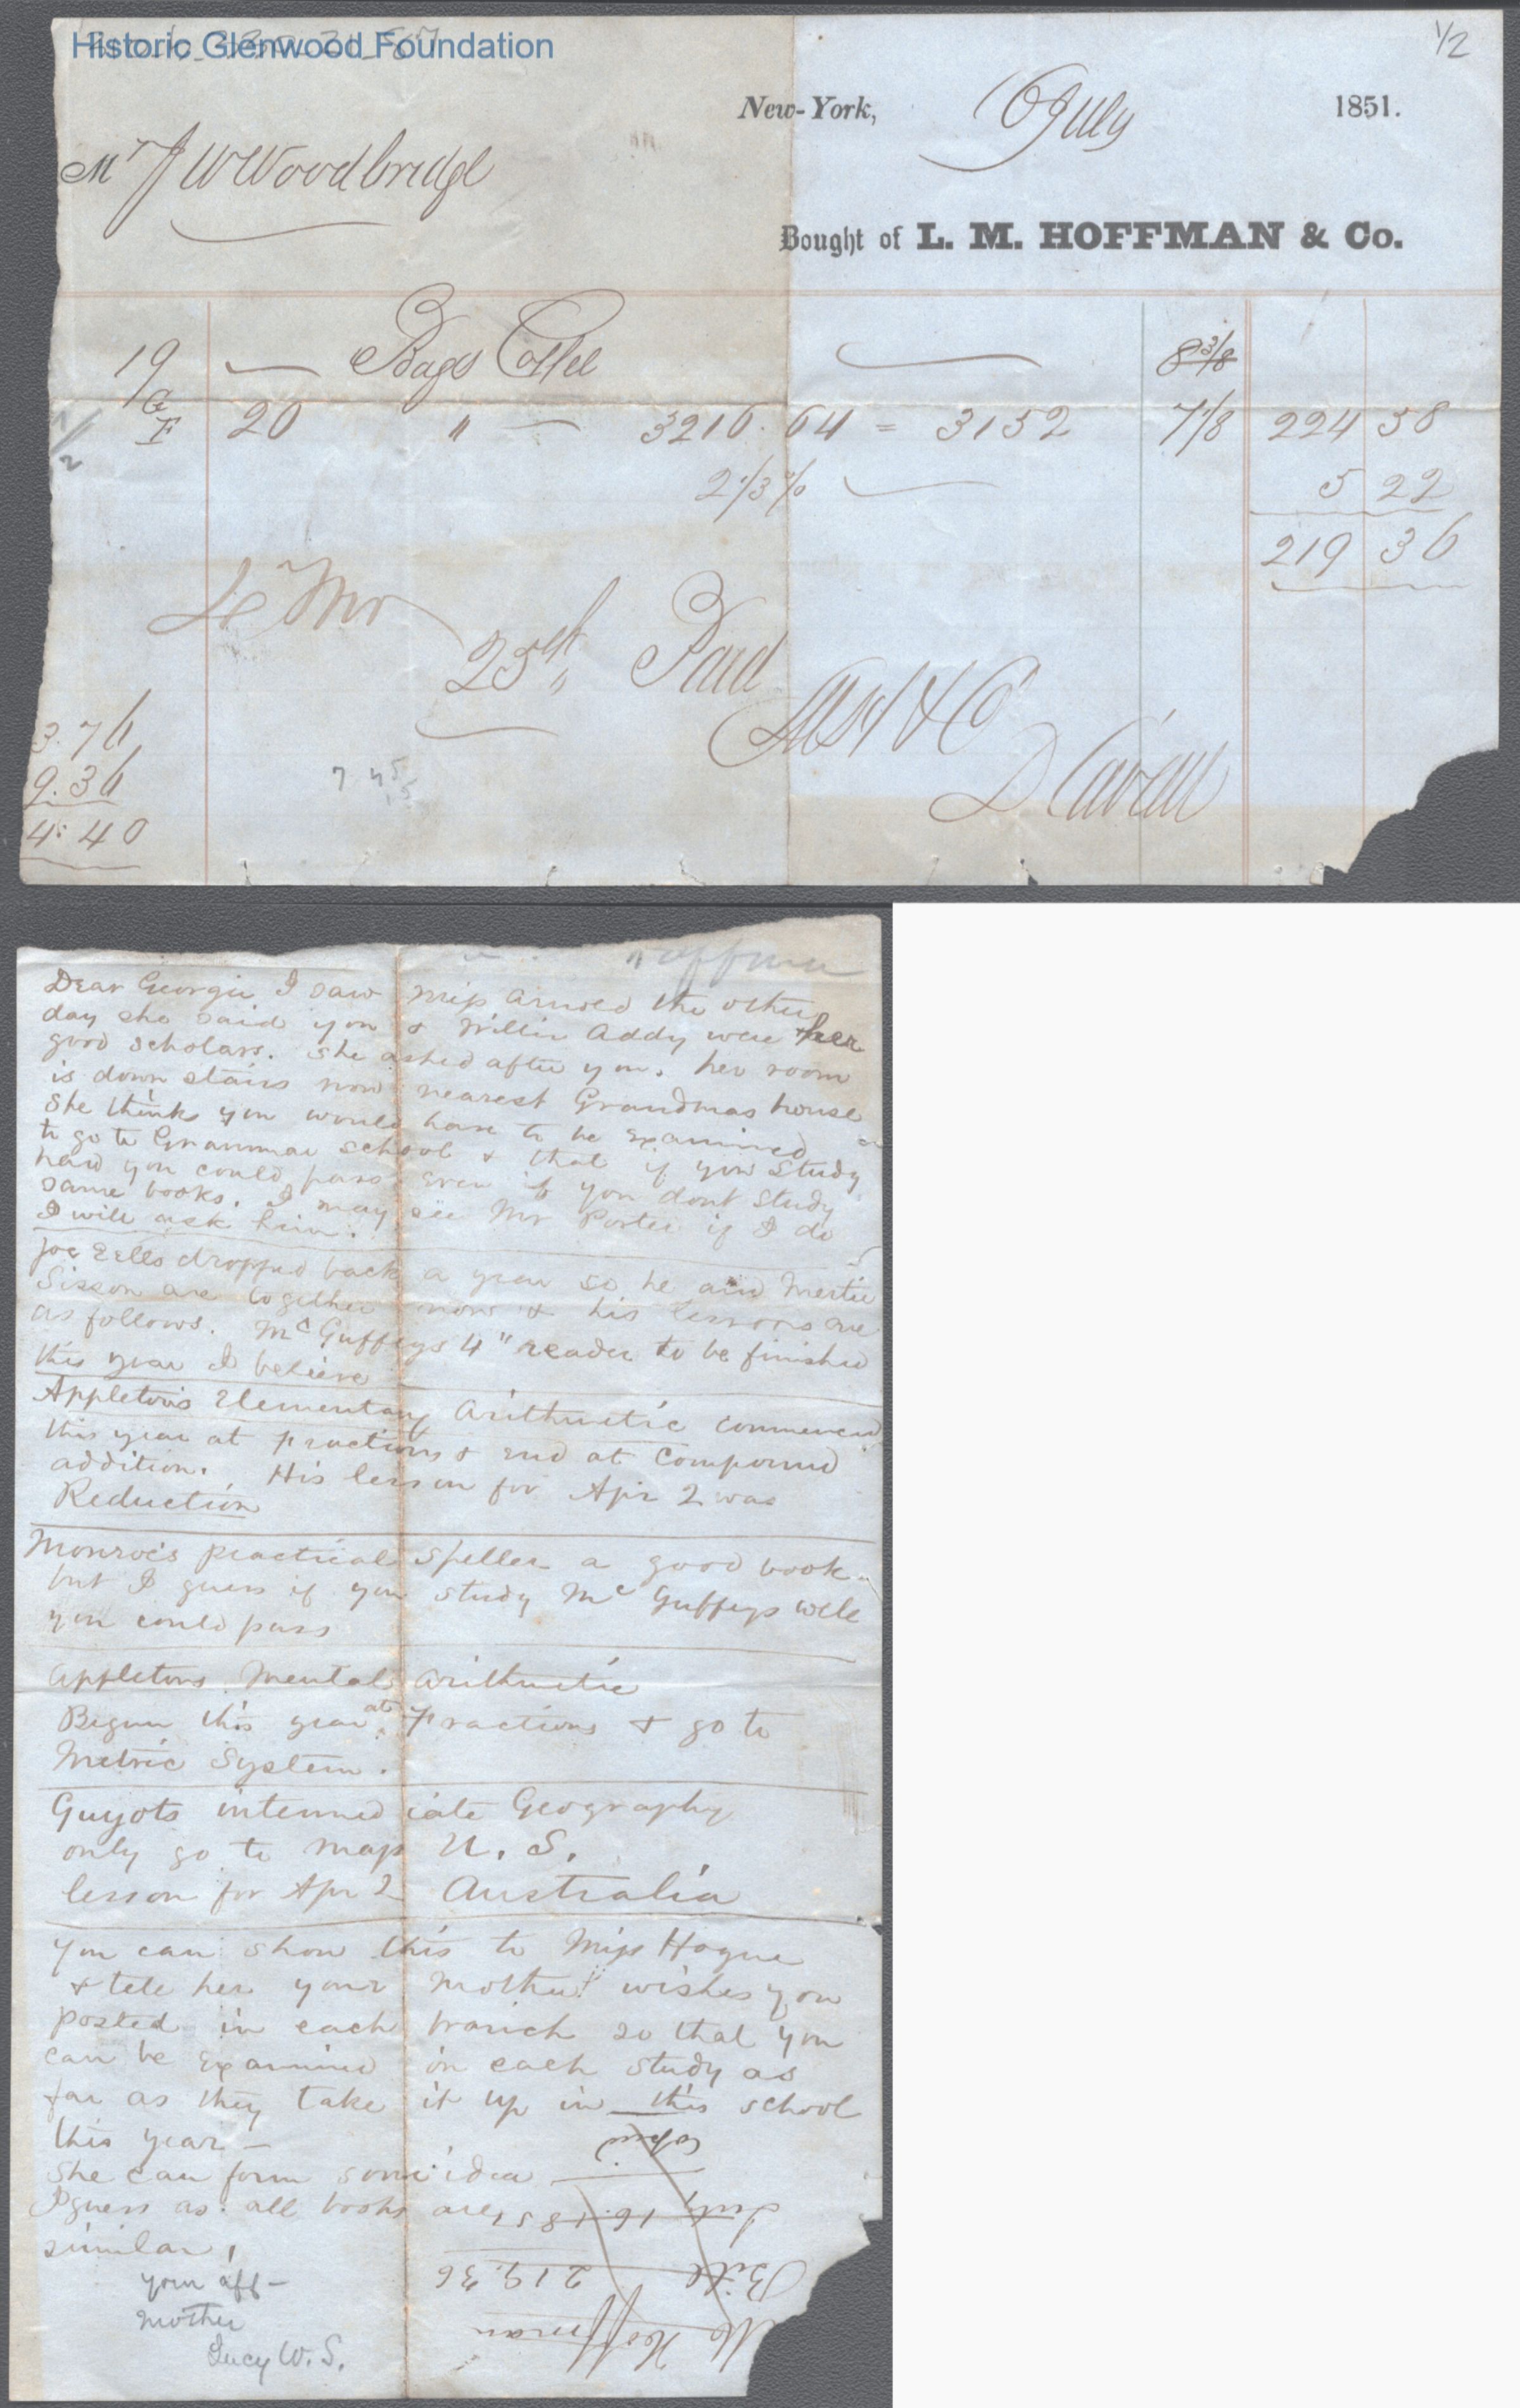 Historic Glenwood Foundation
1/2
New-York, 16 July 1851.
Mr J W Woodbridge
Bought of L. M. HOFFMAN & Co.
19 — Bags Coffee — 8 3/8
G F 20 " — 3216. 64 = 3152 7 1/8 224 58
1/2
2 1/3 % 5 22
219 36
4 Mo
25th Paid
LMH & Co
D
3.76
9.36
4.40
Dear Georgie I saw Miss the other
day she said you & Willie Addy were her
good scholars. She asked after you. her room
is down stairs now nearest Grandmas house
She thinks you would have to be examined
to go to Grammar school & that if you study
hard you could pass even if you dont study
same books. I may see Mr Porter if I do
I will ask him.
Joe Eells dropped back a year so he and Mertie
Sisson are together now & his lessons are
as follows. McGuffeys 4" reader to be finished
this year I believe
Appletons Elementary Arithmetic commenced
this year at Fractions & end at Compound
addition. His lesson for Apr 2 was
Reduction
Monroe's practical Speller a good book
but I guess if you study McGuffeys well
you could pass
Appletons Mental Arithmetic
Begun this year at Fractions & go to
Metric System.
Guyots intermediate Geography
only go to map U. S.
lesson for Apr 2 Australia
You can show this to Miss Hogue
& tell her your Mother wishes you
posted in each branch so that you
can be examined in each study as
far as they take it up in this school
this year —
She can form some idea
I guess as all books are
similar,
your aff—
Mother
Lucy W. S.
Hoffman
Bill 219.36
July 16. 1851